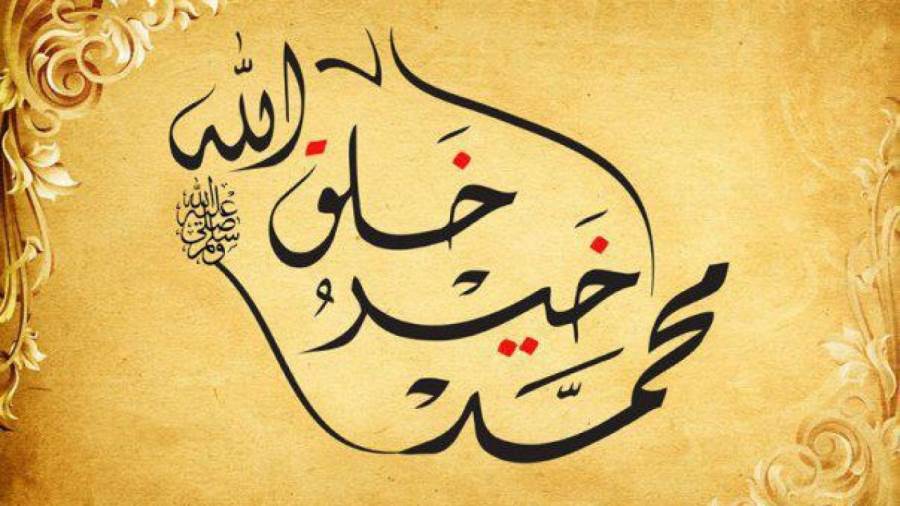 محمد خير خلق الله
صلى الله عليه وسلم